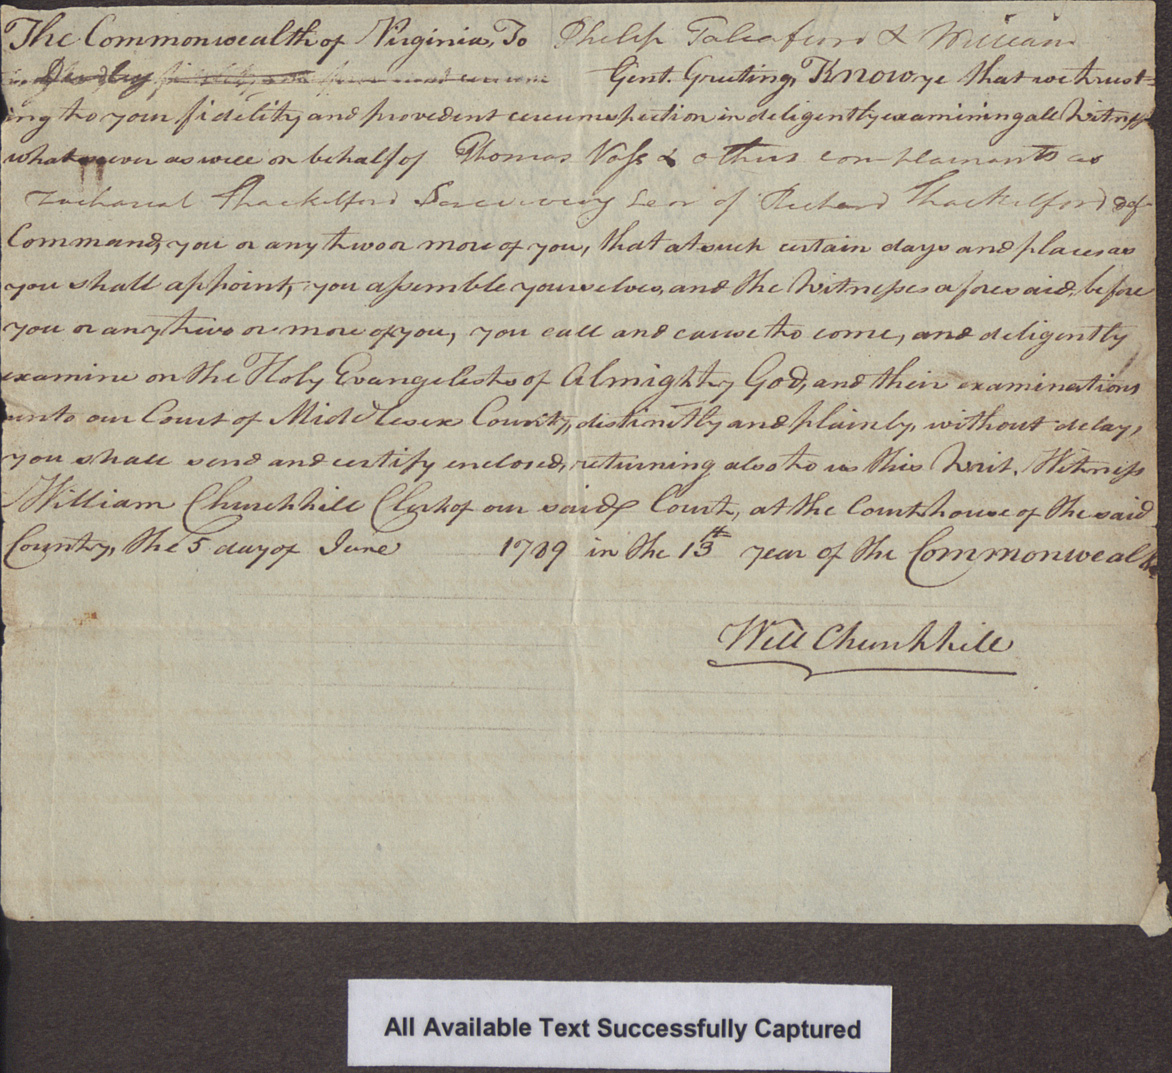 The Commonwealth of Virginia, To Philip Taliafurro & William
Dudley Gent. Greeting, Know ye that we trust-
ing to your fidelity and provedent circumspection in deligently examining all Witness
whatsoever as well on behalf of Thomas Voss & others complainants as
Zachariah Shackelford Surviving Exor of Richard Shackelford def
Command, you or any two or more of you, that at such certain days and places as
you shall appoint, you assemble yourselves, and the Witnesses aforesaid, before
you or any two or more of you, you call and cause to come, and deligently
examine on the Holy Evangelists of Almighty God, and their examinations
unto our Court of Middlesex County, distinctly and plainly, without delay,
you shall send and certify enclosed, returning also to us this Writ. Witness
William Churchhill Clerk of our said Court, at the Courthouse of the said
County, the 5 day of June 1789 in the 13th year of the Commonwealth
Will Churchhill
All Available Text Successfully Captured